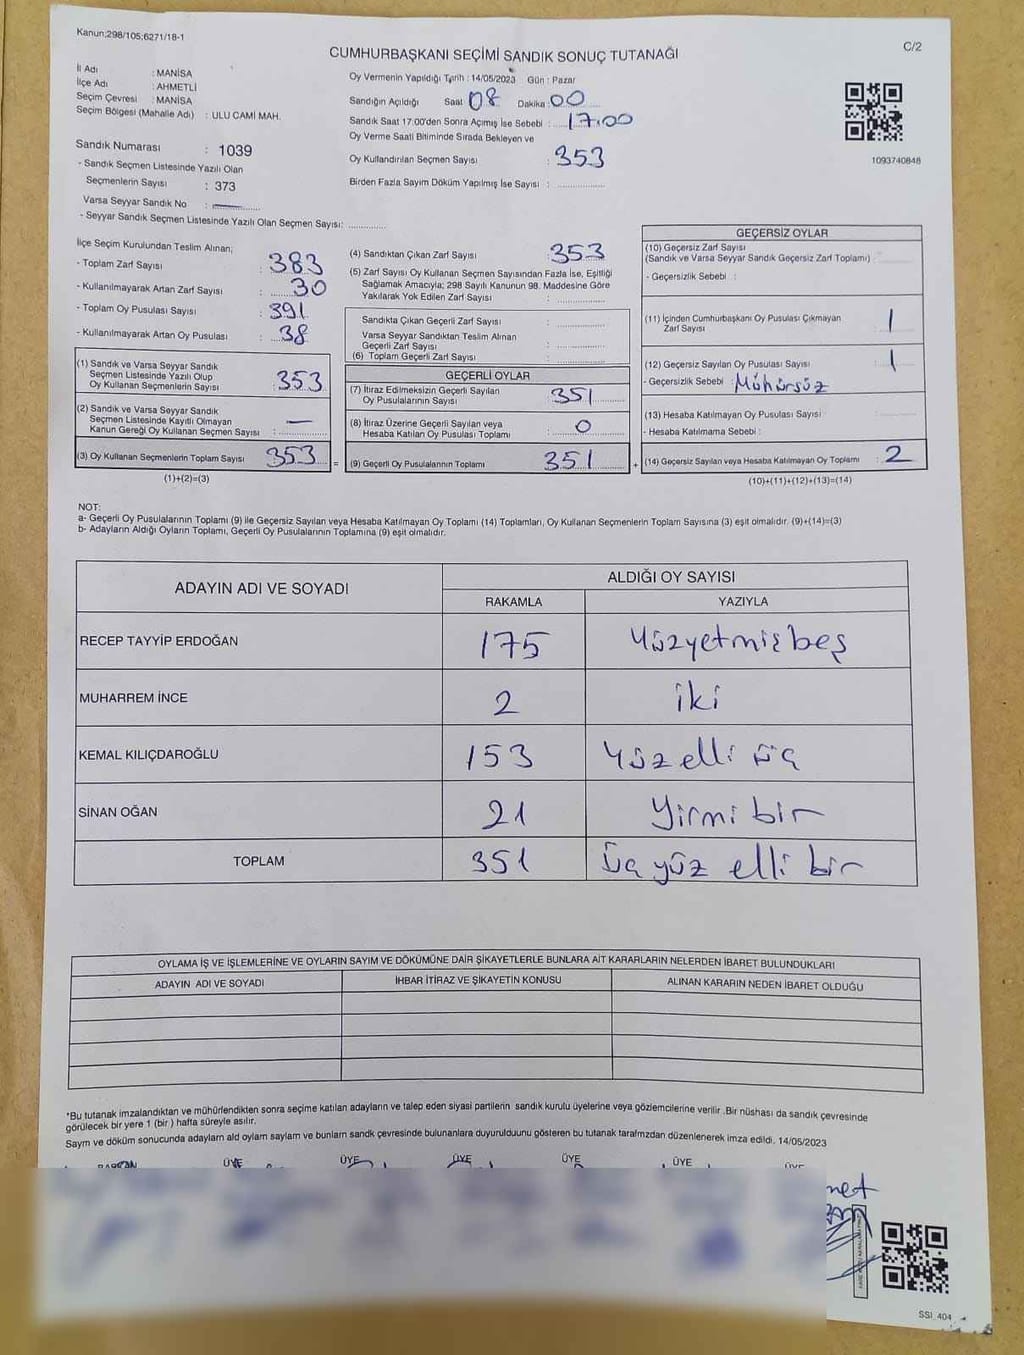 Kanun;298/105;6271/18-1
C/2
CUMHURBAŞKANI SEÇİMİ SANDIK SONUÇ TUTANAĞI
İl Adı : MANİSA
İlçe Adı : AHMETLİ
Seçim Çevresi : MANİSA
Seçim Bölgesi (Mahalle Adı) : ULU CAMİ MAH.
Sandık Numarası : 1039
- Sandık Seçmen Listesinde Yazılı Olan
Seçmenlerin Sayısı : 373
Varsa Seyyar Sandık No :
- Seyyar Sandık Seçmen Listesinde Yazılı Olan Seçmen Sayısı:
Oy Vermenin Yapıldığı Tarih : 14/05/2023 Gün : Pazar
Sandığın Açıldığı Saat 08 Dakika : 00
Sandık Saat 17.00'den Sonra Açımış İse Sebebi : 17:00
Oy Verme Saati Bitiminde Sırada Bekleyen ve
Oy Kullandırılan Seçmen Sayısı : 353
Birden Fazla Sayım Döküm Yapılmış İse Sayısı :
1093740848
İlçe Seçim Kurulundan Teslim Alınan;
- Toplam Zarf Sayısı : 383
- Kullanılmayarak Artan Zarf Sayısı : 30
- Toplam Oy Pusulası Sayısı : 391
- Kullanılmayarak Artan Oy Pusulası : 38
(1) Sandık ve Varsa Seyyar Sandık
Seçmen Listesinde Yazılı Olup
Oy Kullanan Seçmenlerin Sayısı : 353
(2) Sandık ve Varsa Seyyar Sandık
Seçmen Listesinde Kayıtlı Olmayan
Kanun Gereği Oy Kullanan Seçmen Sayısı : —
(3) Oy Kullanan Seçmenlerin Toplam Sayısı 353
(1)+(2)=(3)
(4) Sandıktan Çıkan Zarf Sayısı : 353
(5) Zarf Sayısı Oy Kullanan Seçmen Sayısından Fazla İse, Eşitliği
Sağlamak Amacıyla; 298 Sayılı Kanunun 98. Maddesine Göre
Yakılarak Yok Edilen Zarf Sayısı :
Sandıkta Çıkan Geçerli Zarf Sayısı :
Varsa Seyyar Sandıktan Teslim Alınan
Geçerli Zarf Sayısı :
(6) Toplam Geçerli Zarf Sayısı :
GEÇERLİ OYLAR
(7) İtiraz Edilmeksizin Geçerli Sayılan
Oy Pusulalarının Sayısı : 351
(8) İtiraz Üzerine Geçerli Sayılan veya
Hesaba Katılan Oy Pusulası Toplamı : 0
= (9) Geçerli Oy Pusulalarının Toplamı : 351 +
GEÇERSİZ OYLAR
(10) Geçersiz Zarf Sayısı
(Sandık ve Varsa Seyyar Sandık Geçersiz Zarf Toplamı) :
- Geçersizlik Sebebi :
(11) İçinden Cumhurbaşkanı Oy Pusulası Çıkmayan
Zarf Sayısı : 1
(12) Geçersiz Sayılan Oy Pusulası Sayısı : 1
- Geçersizlik Sebebi Mühürsüz
(13) Hesaba Katılmayan Oy Pusulası Sayısı :
- Hesaba Katılmama Sebebi :
(14) Geçersiz Sayılan veya Hesaba Katılmayan Oy Toplamı : 2
(10)+(11)+(12)+(13)=(14)
NOT:
a- Geçerli Oy Pusulalarının Toplamı (9) ile Geçersiz Sayılan veya Hesaba Katılmayan Oy Toplamı (14) Toplamları, Oy Kullanan Seçmenlerin Toplam Sayısına (3) eşit olmalıdır. (9)+(14)=(3)
b- Adayların Aldığı Oyların Toplamı, Geçerli Oy Pusulalarının Toplamına (9) eşit olmalıdır.
ADAYIN ADI VE SOYADI ALDIĞI OY SAYISI
RAKAMLA YAZIYLA
RECEP TAYYİP ERDOĞAN 175 Yüzyetmişbeş
MUHARREM İNCE 2 iki
KEMAL KILIÇDAROĞLU 153 Yüz elli üç
SİNAN OĞAN 21 Yirmi bir
TOPLAM 351 Üç yüz elli bir
OYLAMA İŞ VE İŞLEMLERİNE VE OYLARIN SAYIM VE DÖKÜMÜNE DAİR ŞİKAYETLERLE BUNLARA AİT KARARLARIN NELERDEN İBARET BULUNDUKLARI
ADAYIN ADI VE SOYADI İHBAR İTİRAZ VE ŞİKAYETİN KONUSU ALINAN KARARIN NEDEN İBARET OLDUĞU
*Bu tutanak imzalandıktan ve mühürlendikten sonra seçime katılan adayların ve talep eden siyasi partilerin sandık kurulu üyelerine veya gözlemcilerine verilir .Bir nüshası da sandık çevresinde
görülecek bir yere 1 (bir ) hafta süreyle asılır.
Saym ve döküm sonucunda adaylarn ald oylarn saylarn ve bunlarn sandk çevresinde bulunanlara duyurulduunu gösteren bu tutanak tarafmzdan düzenlenerek imza edildi. 14/05/2023
BAŞKAN ÜYE ÜYE ÜYE ÜYE ÜYE ÜYE
SSI_404